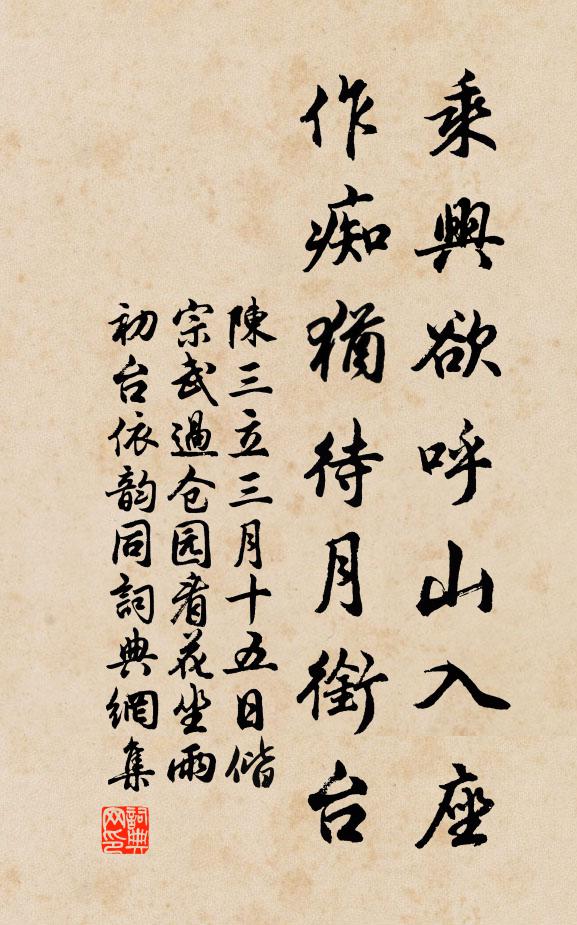 乘興欲呼山入座
作痴猶待月銜台
陳三立三月十五日偕
宗武過仓园看花坐雨
初台依韵同詞典網集
詞典
网印